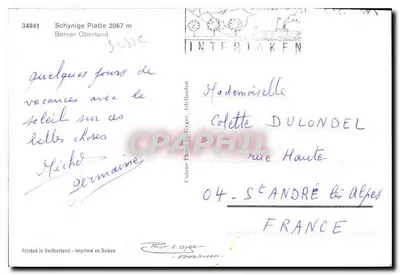 34941 Schynige Platte 2067 m
Berner Oberland
Suisse
INTERLAKEN
quelques jours de
vacances avec le
soleil sur ces
belles choses
Michel
germaine
Mademoiselle
Colette DULONDEL
rue Haute
04. St ANDRÉ les Alpes
FRANCE
Colour Photo by Gyger, Adelboden
CPArama.com
Printed in Switzerland - Imprimé en Suisse
Adelboden